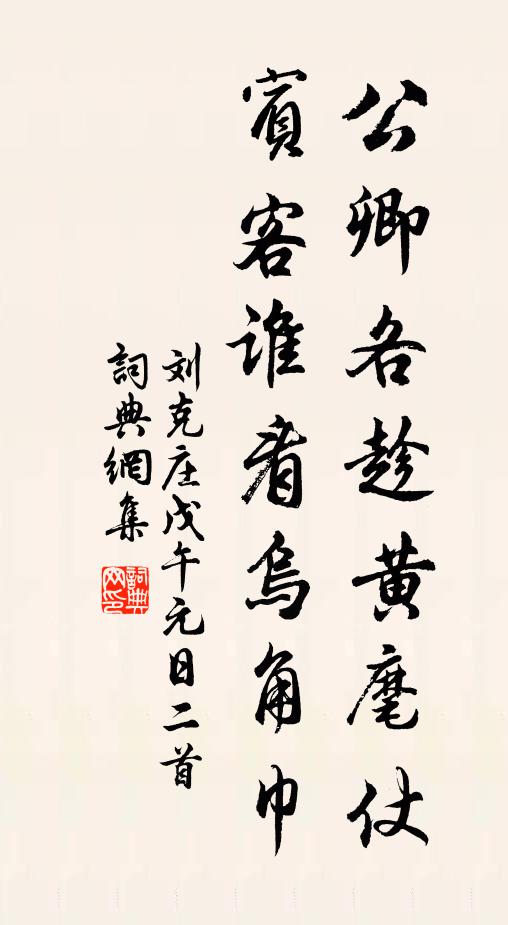 公卿各趁黄麾仗
賓客谁看烏角巾
刘克庄戊午元日二首
詞典網集
詞典
网印